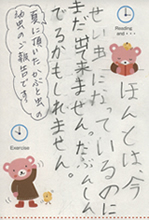 Reading
and・・・
ほんとは、今
せい虫になっているのに
まだ出来ません。たぶんしん
でるかもしれません。
夏に頂いたかぶと虫の
幼虫のご報告です。
Exercise